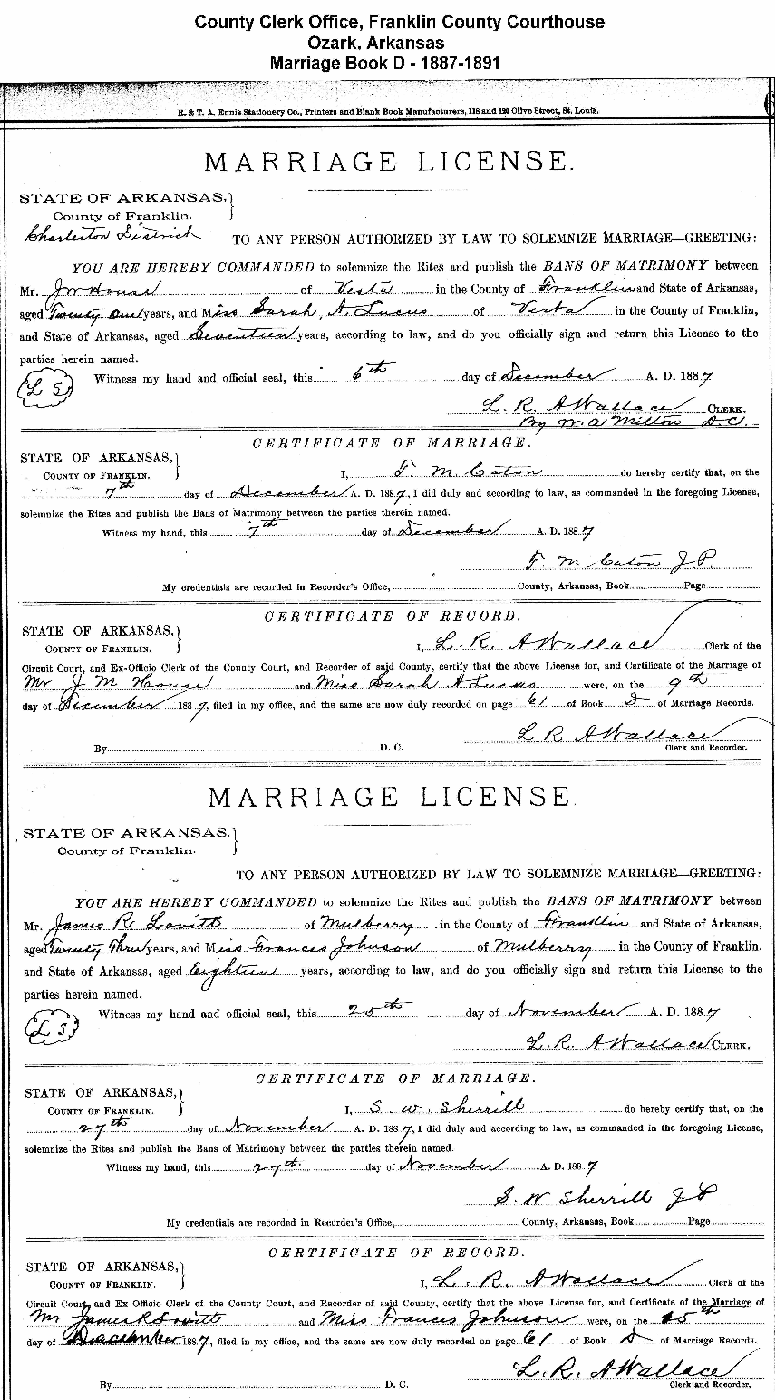 County Clerk Office, Franklin County Courthouse
Ozark, Arkansas
Marriage Book D - 1887-1891
E. & T. A. Ennis Stationery Co., Printers and Blank Book Manufacturers, 118 and 120 Olive Street, St. Louis.
MARRIAGE LICENSE.
STATE OF ARKANSAS,
County of Franklin.
Charleston District TO ANY PERSON AUTHORIZED BY LAW TO SOLEMNIZE MARRIAGE—GREETING:
YOU ARE HEREBY COMMANDED to solemnize the Rites and publish the BANS OF MATRIMONY between
Mr. J W House of Vesta in the County of Franklin and State of Arkansas,
aged Twenty One years, and Miss Sarah A. Lucus of Vesta in the County of Franklin,
and State of Arkansas, aged Seventeen years, according to law, and do you officially sign and return this License to the
parties herein named.
L S Witness my hand and official seal, this 6th day of December A. D. 1887
L. R. A Wallace CLERK.
By W. A Milton D.C.
CERTIFICATE OF MARRIAGE.
STATE OF ARKANSAS,
COUNTY OF FRANKLIN. I, F. M. Eaton do hereby certify that, on the
7th day of December A. D. 1887, I did duly and according to law, as commanded in the foregoing License,
solemnize the Rites and publish the Bans of Matrimony between the parties therein named.
Witness my hand, this 7th day of December A. D. 1887
F. M Eaton J.P.
My credentials are recorded in Recorder's Office, County, Arkansas, Book Page
CERTIFICATE OF RECORD.
STATE OF ARKANSAS,
COUNTY OF FRANKLIN. I, L. R. A Wallace Clerk of the
Circuit Court, and Ex-Officio Clerk of the County Court, and Recorder of said County, certify that the above License for, and Certificate of the Marriage of
Mr J. M House and Miss Sarah A Lucus were, on the 9th
day of December 1887, filed in my office, and the same are now duly recorded on page 61 of Book D of Marriage Records.
L R. A Wallace
By D. C. Clerk and Recorder.
MARRIAGE LICENSE.
STATE OF ARKANSAS,
County of Franklin.
TO ANY PERSON AUTHORIZED BY LAW TO SOLEMNIZE MARRIAGE—GREETING:
YOU ARE HEREBY COMMANDED to solemnize the Rites and publish the BANS OF MATRIMONY between
Mr. James R. Lovitt of Mulberry in the County of Franklin and State of Arkansas,
aged Twenty Three years, and Miss Frances Johnson of Mulberry in the County of Franklin.
and State of Arkansas, aged Eighteen years, according to law, and do you officially sign and return this License to the
parties herein named.
L S Witness my hand and official seal, this 25th day of November A. D. 1887
L. R. A Wallace CLERK.
CERTIFICATE OF MARRIAGE.
STATE OF ARKANSAS,
COUNTY OF FRANKLIN. I, S. W. Sherrill do hereby certify that, on the
27th day of November A. D. 1887, I did duly and according to law, as commanded in the foregoing License,
solemnize the Rites and publish the Bans of Matrimony between the parties therein named.
Witness my hand, this 27th day of November A. D. 1887
S. W Sherrill J P
My credentials are recorded in Recorder's Office, County, Arkansas, Book Page
CERTIFICATE OF RECORD.
STATE OF ARKANSAS,
COUNTY OF FRANKLIN. I, L. R. A Wallace Clerk of the
Circuit Court, and Ex Officio Clerk of the County Court, and Recorder of said County, certify that the above License for, and Certificate of the Marriage of
Mr James R Lovitt and Miss Frances Johnson were, on the 15th
day of December 1887, filed in my office, and the same are now duly recorded on page 61 of Book D of Marriage Records.
L. R. A Wallace
By D. C. Clerk and Recorder.